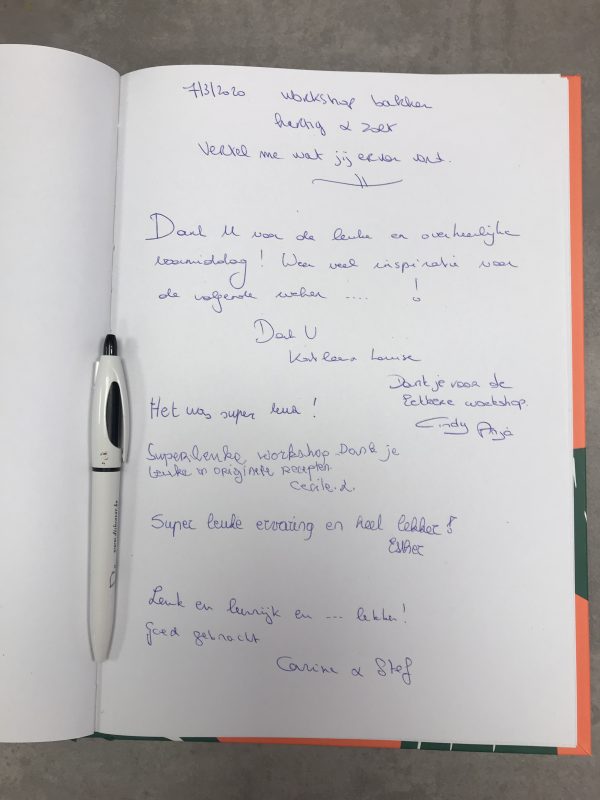 7/3/2020 workshop bakken
hartig & zoet
Vertel me wat jij ervan vond.
Dank U voor de leuke en overheerlijke
voormiddag! Weer veel inspiratie voor
de volgende weken .... !
Dank U
Kathleen Louise
Dank je voor de
lekkere workshop.
Cindy Anja
Het was super leuk!
Superleuke workshop. Dank je
leuke en originele recepten.
Cecile.L.
Super leuke ervaring en heel lekker!
Esther
Leuk en leerrijk en ... lekker!
Goed gebracht
Carine & Stef